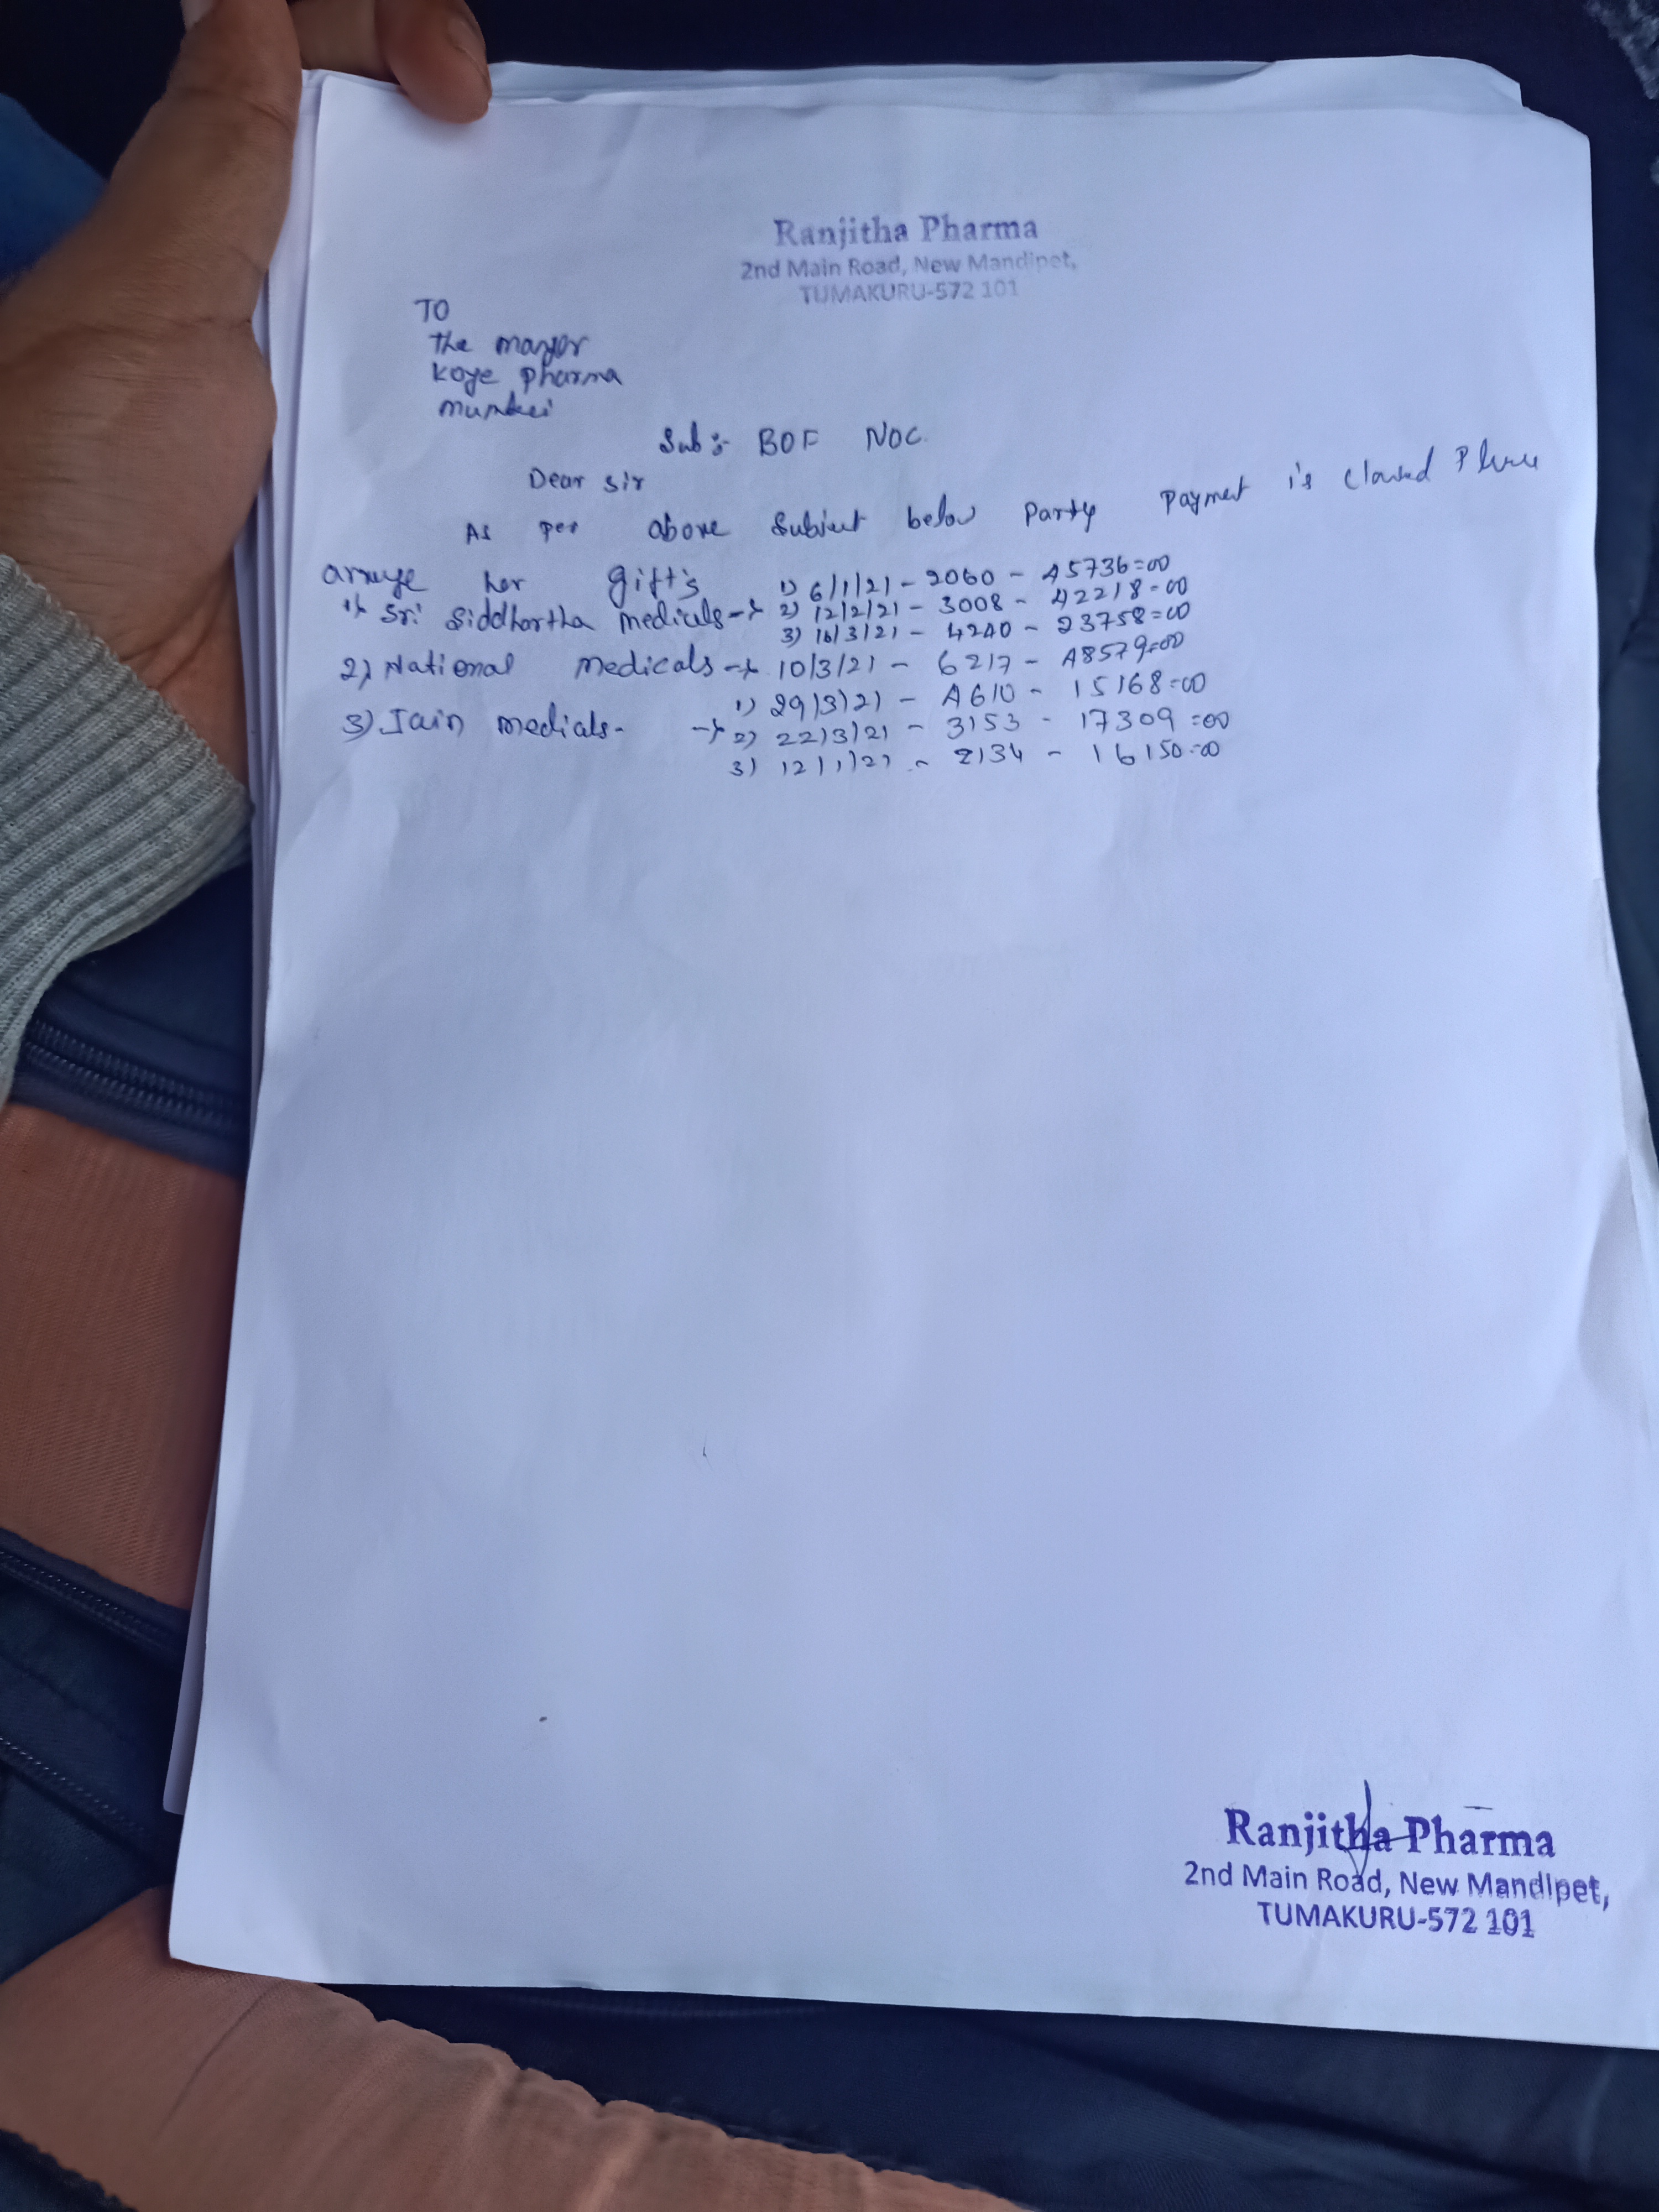 Ranjitha Pharma
2nd Main Road, New Mandipet,
TUMAKURU-572 101
TO
The
Koye Pharma
Mumbai
Sub:- BOF NOC.
Dear Sir
As per above Subject below Party Payment is
gift's
1) Sri Siddhartha medicals → 1) 6/1/21 - 2060 - 45736=00
2) 12/2/21 - 3008 - 42218=00
3) 16/3/21 - 4240 - 23758=00
2) National Medicals → 10/3/21 - 6217 - 48579=00
3) Jain medials - → 1) 29/3/21 - 4610 - 15168=00
2) 22/3/21 - 3153 - 17309=00
3) 12/1/21 - 2134 - 16150=00
Ranjitha Pharma
2nd Main Road, New Mandipet,
TUMAKURU-572 101